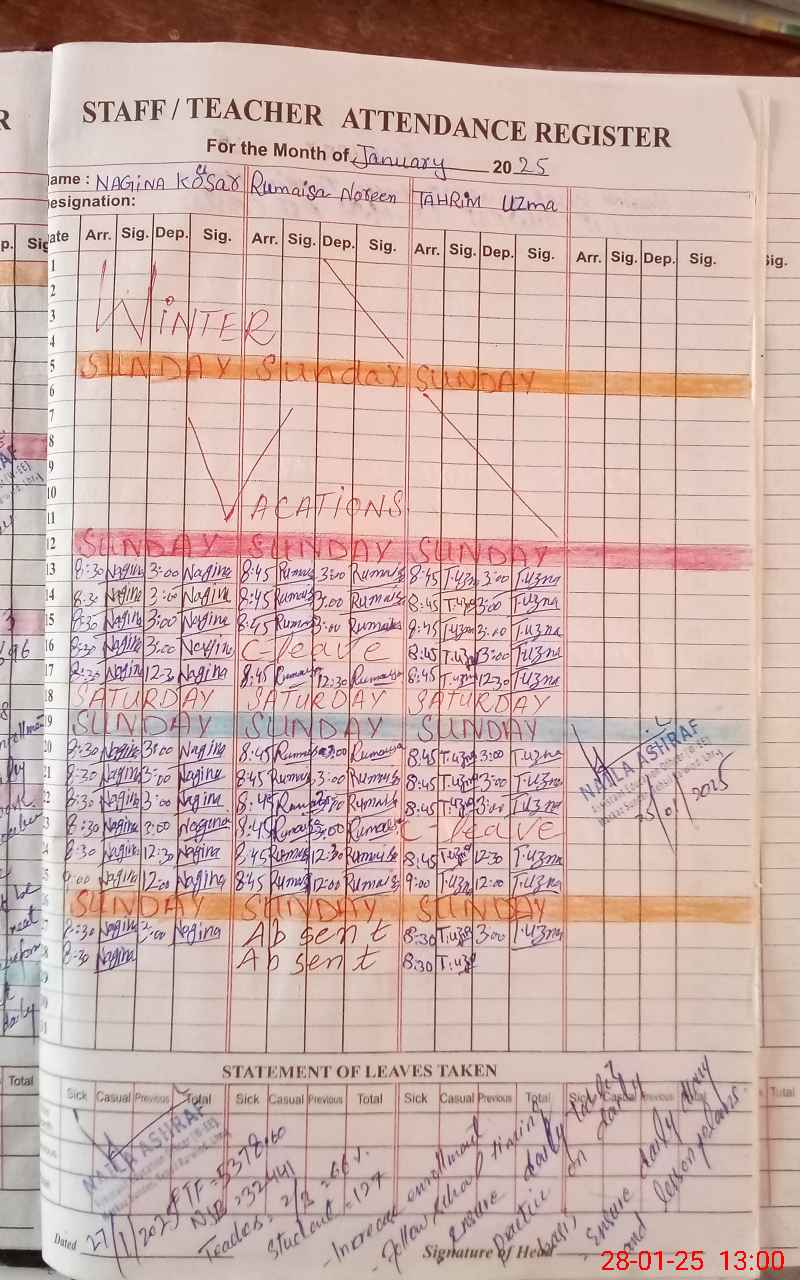 STAFF / TEACHER ATTENDANCE REGISTER
For the Month of January 2025
ame : NAGINA Kosar Rumaisa Noreen TAHRIM Uzma
esignation:
ate Arr. Sig. Dep. Sig. Arr. Sig. Dep. Sig. Arr. Sig. Dep. Sig. Arr. Sig. Dep. Sig.
1
2
3 WINTER
4
5 SUNDAY Sunday SUNDAY
6
7
8
9
10 VACATIONS
11
12 SUNDAY SUNDAY SUNDAY
13 8:30 Nagina 3:00 Nagina 8:45 Rumais 3:00 Rumais 8:45 T.uzma 3:00 T.uzma
14 8:30 Nagina 3:00 Nagina 8:45 Rumais 3:00 Rumais 8:45 T.uzma 3:00 T.uzma
15 8:30 Nagina 3:00 Nagina 8:45 Rumais 3:00 Rumais 8:45 T.uzma 3:00 T.uzma
16 8:30 Nagina 3:00 Nagina C-leave 8:45 T.uzma 3:00 T.uzma
17 8:30 Nagina 12:30 Nagina 8:45 Rumaisa 12:30 Rumaisa 8:45 T.uzma 12:30 T.uzma
18 SATURDAY SATURDAY SATURDAY
19 SUNDAY SUNDAY SUNDAY
20 8:30 Nagina 3:00 Nagina 8:45 Rumais 3:00 Rumaisa 8:45 T.uzma 3:00 T.uzma
21 8:30 Nagina 3:00 Nagina 8:45 Rumais 3:00 Rumais 8:45 T.uzma 3:00 T.uzma
22 8:30 Nagina 3:00 Nagina 8:45 Rumais 3:00 Rumaisa 8:45 T.uzma 3:00 T.uzma
23 8:30 Nagina 3:00 Nagina 8:45 Rumaisa 3:00 Rumaisa C-leave
24 8:30 Nagina 12:30 Nagina 8:45 Rumais 12:30 Rumaisa 8:45 T.uzma 12:30 T.uzma
25 9:00 Nagina 12:00 Nagina 8:45 Rumais 12:00 Rumaisa 9:00 T.uzma 12:00 T.uzma
26 SUNDAY SUNDAY SUNDAY
27 8:30 Nagina 3:00 Nagina Absent 8:30 T.uzma 3:00 T.uzma
28 8:30 Nagina Absent 8:30 T.uzma
NAILA ASHRAF
25/01/2025
STATEMENT OF LEAVES TAKEN
Sick Casual Previous Total Sick Casual Previous Total Sick Casual Previous Total Sick Casual Previous Total
NAILA ASHRAF
27/1/2025
PTF = 5378.60
NSB = 32441
Teacher = 2/3 = 66%
Student = 127
- Increase enrollment
- Follow school timing
- Ensure daily tablet
practice on daily
basis
- Ensure daily diary
and lesson plans
Dated
Signature of Head
28-01-25 13:00